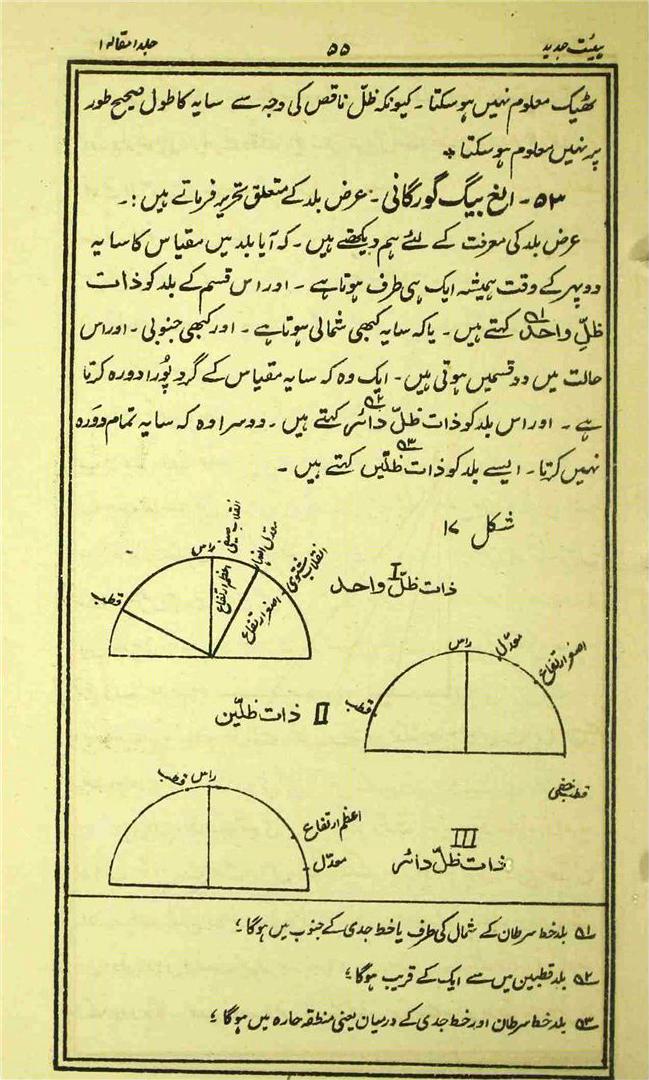 ہیئت جدید
۵۵
جلد ا مقالہ ا
ٹھیک معلوم نہیں ہو سکتا ۔ کیونکہ ظلّ ناقص کی وجہ سے سایہ کا طول صحیح طور
پر نہیں معلوم ہو سکتا *
۵۳ ۔ الغ بیگ گورگانی ۔ عرض بلد کے متعلق تحریر فرماتے ہیں :۔
عرض بلد کی معرفت کے لئے ہم دیکھتے ہیں ۔ کہ آیا بلد میں مقیاس کا سایہ
دوپہر کے وقت ہمیشہ ایک ہی طرف ہوتا ہے ۔ اور اس قسم کے بلد کو ذات
ظلِّ واحد ۵۱ کہتے ہیں ۔ یا کہ سایہ کبھی شمالی ہوتا ہے ۔ اور کبھی جنوبی ۔ اور اس
حالت میں دو قسمیں ہوتی ہیں ۔ ایک وہ کہ سایہ مقیاس کے گرد پُورا دورہ کرتا
ہے ۔ اور اس بلد کو ذات ظلّ دائر ۵۲ کہتے ہیں ۔ دوسرا وہ کہ سایہ تمام دَورہ
نہیں کرتا ۔ ایسے بلد کو ذات ظلّیں ۵۳ کہتے ہیں ۔
شکل ۱۷
I
ذات ظلّ واحد
قطب
راس
انقلاب صیفی
معدل النہار
انقلاب شتوی
اعظم ارتفاع
اصغر ارتفاع
II ذات ظلّین
قطب
راس
معدّل
اصغر ارتفاع
قطب خفی
III
ذات ظلّ دائر
قطب
راس
اعظم ارتفاع
معدّل
۵۱ بلد خط سرطان کے شمال کی طرف یا خط جدی کے جنوب میں ہوگا ؛
۵۲ بلد قطبین میں سے ایک کے قریب ہوگا ؛
۵۳ بلد خط سرطان اور خط جدی کے درمیان یعنی منطقہ حارہ میں ہوگا ؛